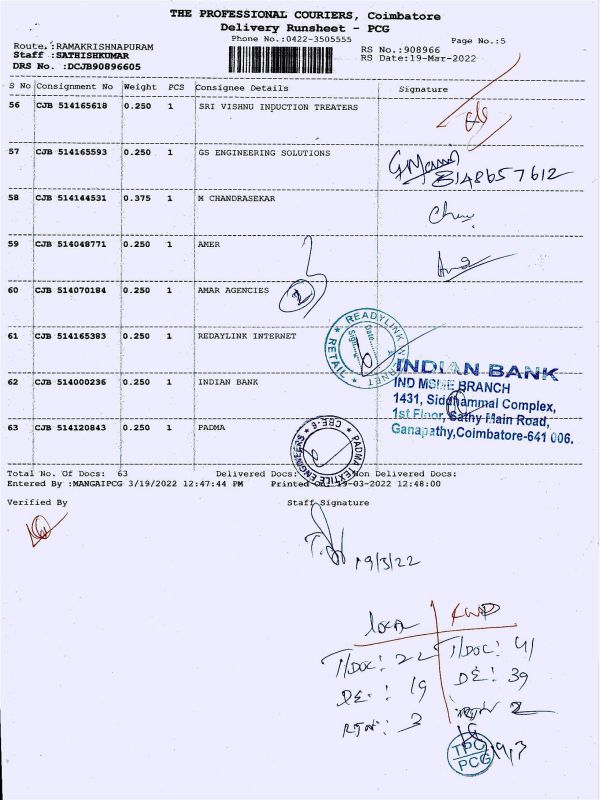 THE PROFESSIONAL COURIERS, Coimbatore
Delivery Runsheet - PCG
Phone No.:0422-3505555
Page No.:5
Route.:RAMAKRISHNAPURAM
RS No.:908966
Staff :SATHISHKUMAR
RS Date:19-Mar-2022
DRS No. :DCJB90896605
S No Consignment No Weight PCS Consignee Details Signature
56 CJB 514165618 0.250 1 SRI VISHNU INDUCTION TREATERS
57 CJB 514165593 0.250 1 GS ENGINEERING SOLUTIONS
8148657612
58 CJB 514144531 0.375 1 M CHANDRASEKAR
59 CJB 514048771 0.250 1 AMER
60 CJB 514070184 0.250 1 AMAR AGENCIES
2
61 CJB 514165383 0.250 1 REDAYLINK INTERNET
READYLINK
RETAIL
Date
Sign
62 CJB 514000236 0.250 1 INDIAN BANK
INDIAN BANK
IND MSME BRANCH
1431, Siddhammal Complex,
1st Floor, Sathy Main Road,
Ganapathy,Coimbatore-641 006.
63 CJB 514120843 0.250 1 PADMA
PADMA TEXTILE ENGINEERS CBE-6
Total No. Of Docs: 63 Delivered Docs: Non Delivered Docs:
Entered By :MANGAIPCG 3/19/2022 12:47:44 PM Printed On 19-03-2022 12:48:00
Verified By Staff Signature
19/3/22
T/DOC: 22 T/DOC: 41
DE: 19 DE: 39
RTN: 3 RTN 2
TPC
PCG
19,3